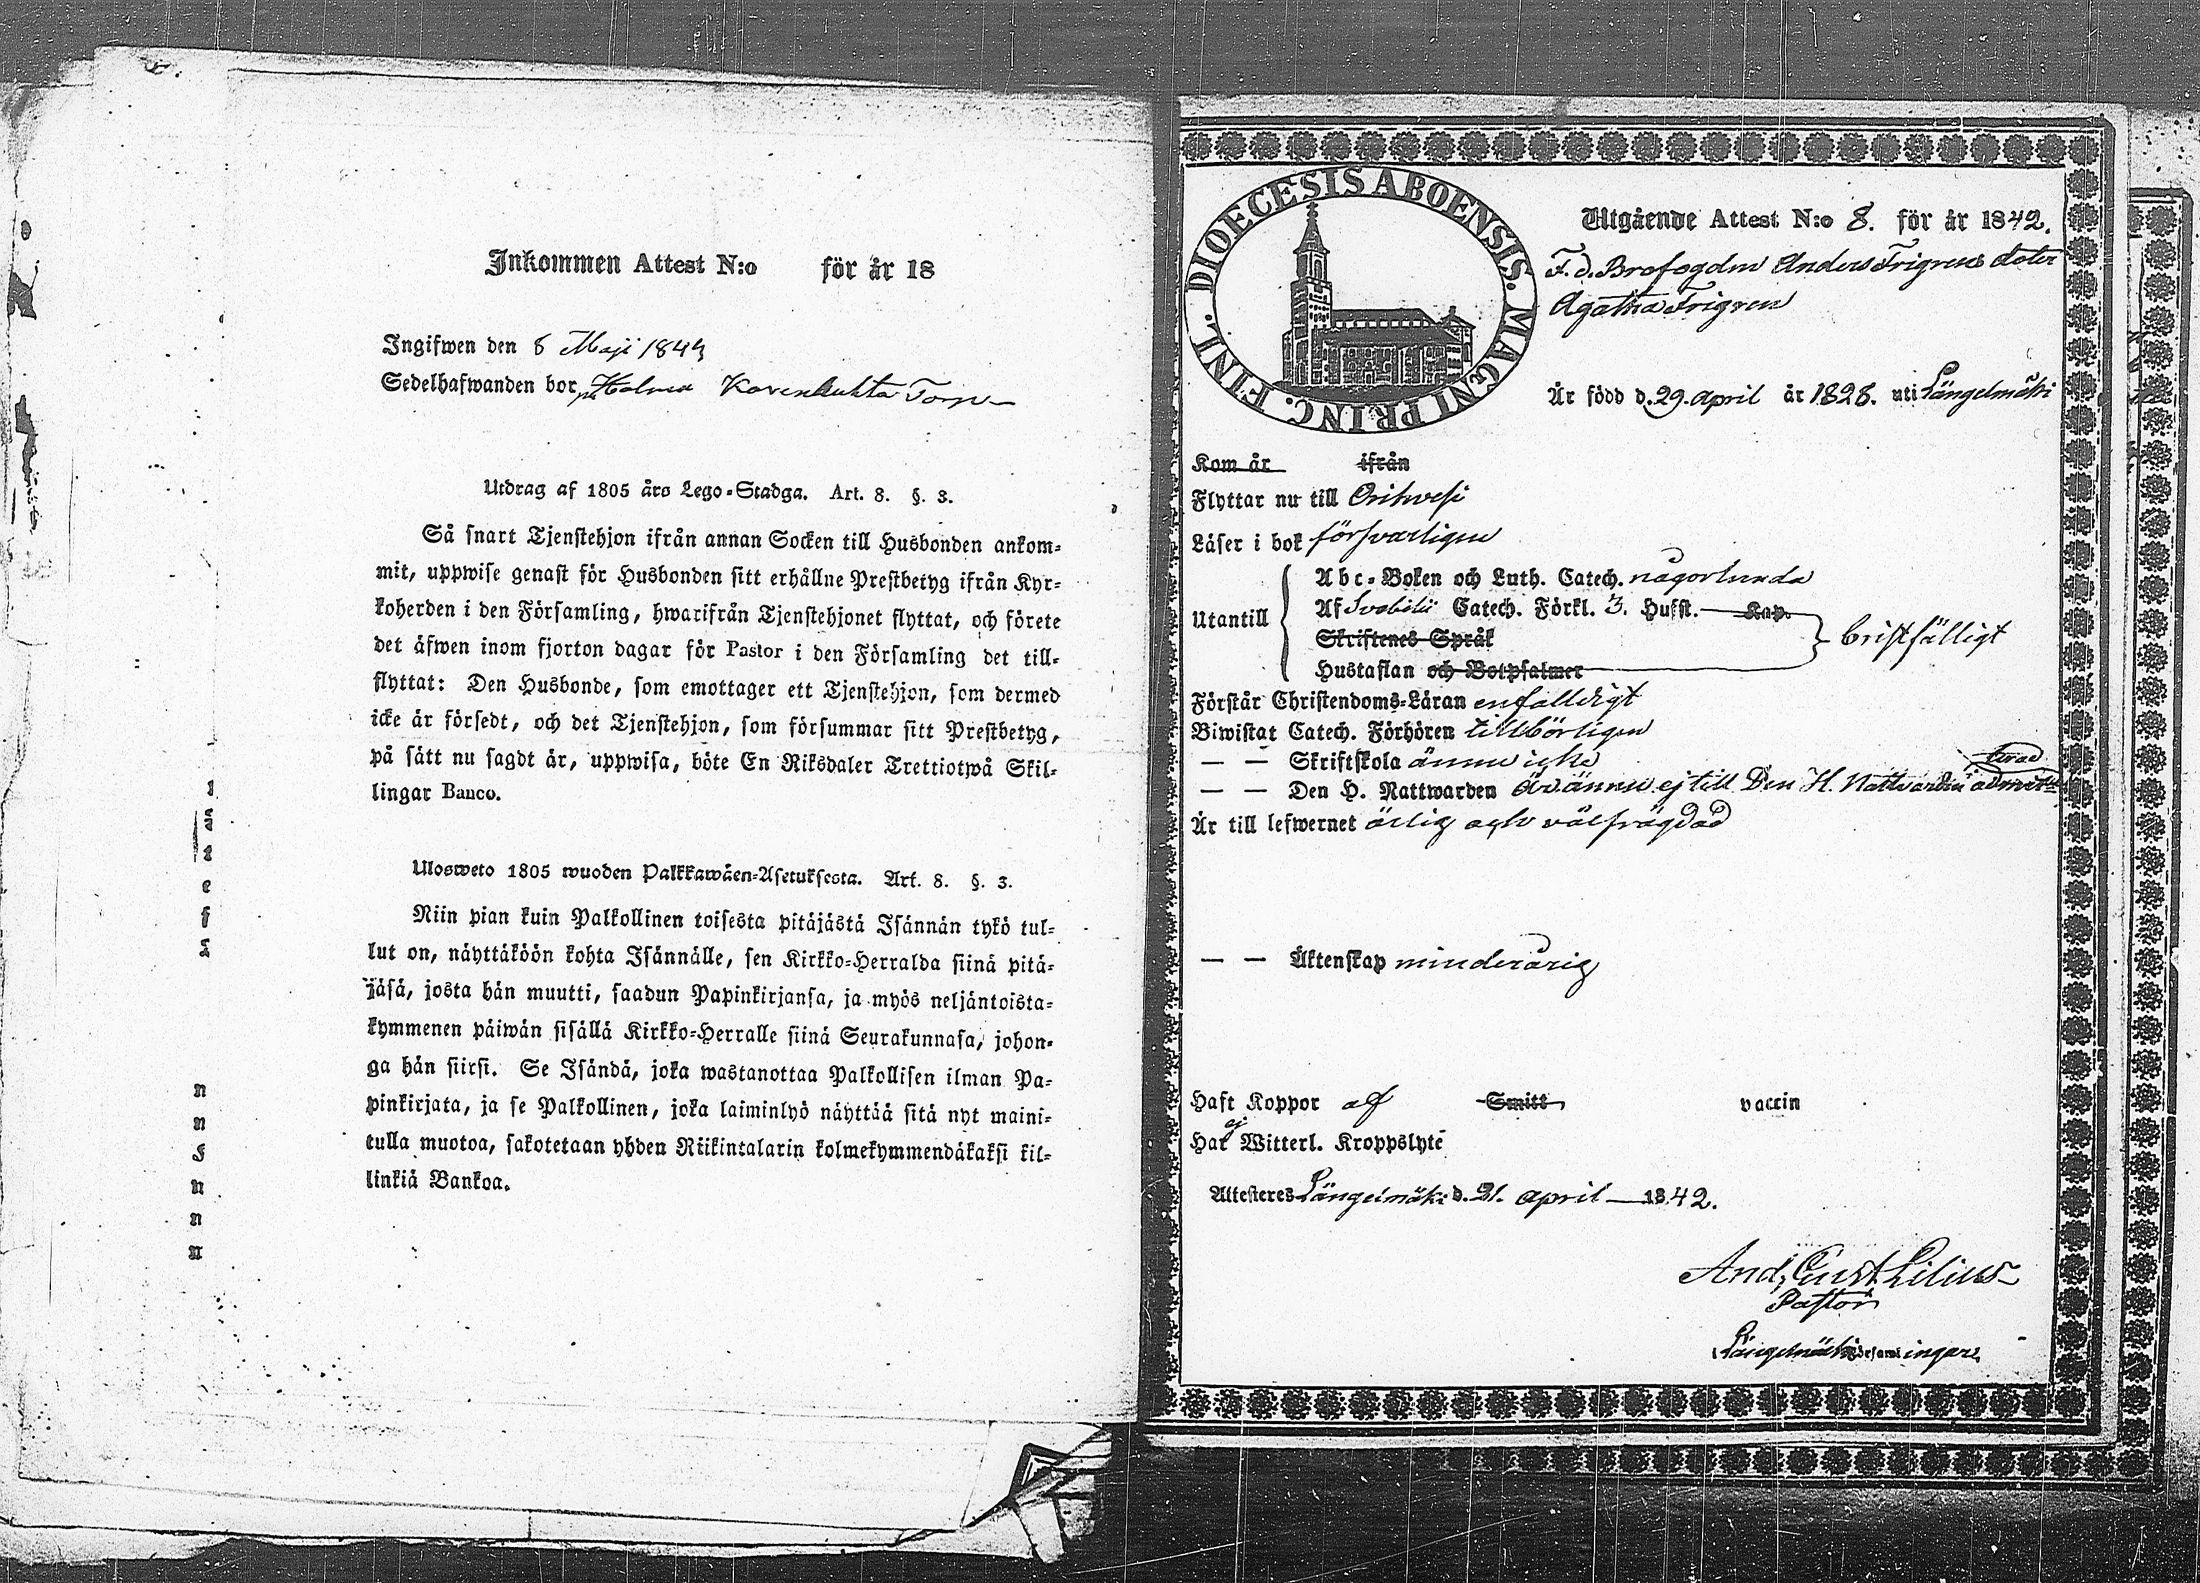 Inkommen Attest N:o för år 18
Ingifwen den 8 Maji 1844
Sedelhafwanden bor på Holma Torp
Utdrag af 1805 års Lego-Stadga. Art. 8. §. 3.
Så snart Tjenstehjon ifrån annan Socken till Husbonden ankom-
mit, uppwise genast för Husbonden sitt erhållne Prestbetyg ifrån Kyr-
koherden i den Församling, hwarifrån Tjenstehjonet flyttat, och förete
det äfwen inom fjorton dagar för Pastor i den Församling det till-
flyttat: Den Husbonde, som emottager ett Tjenstehjon, som dermed
icke är försedt, och det Tjenstehjon, som försummar sitt Prestbetyg,
på sätt nu sagdt är, uppwisa, böte En Riksdaler Trettiotwå Skil-
lingar Banco.
Ulosweto 1805 wuoden Palkkawäen-Asetuksesta. Art. 8. §. 3.
Niin pian kuin Palkollinen toisesta pitäjästä Isännän tykö tul-
lut on, näyttäköön kohta Isännälle, sen Kirkko-Herralda siinä pitä-
jäsä, josta hän muutti, saadun Papinkirjansa, ja myös neljäntoista-
kymmenen päiwän sisällä Kirkko-Herralle siinä Seurakunnasa, johon-
ga hän siirsi. Se Isändä, joka wastanottaa Palkollisen ilman Pa-
pinkirjata, ja se Palkollinen, joka laiminlyö näyttää sitä nyt maini-
tulla muotoa, sakotetaan yhden Riikintalarin kolmekymmendäkaksi kil-
linkiä Bankoa.
DIOECESIS ABOENSIS. MAGNI PRINC. FINL.
Utgående Attest N:o 8. för år 1842.
F. d. Brofogden Anders Frigrens doter
Agatha Frigren
Är född d. 29. april år 1828. uti Längelmäki
Kom år ifrån
Flyttar nu till Orihvesi
Läser i bok försvarligen
Utantill
Abc-Boken och Luth. Catech. någorlunda
Af Svebilii Catech. Förkl. 3. Hufst. Kap.
Skriftenes Språk
bristfälligt
Hustaflan och Botpsalmer
Förstår Christendoms-Läran enfaldigt
Biwistat Catech. Förhören tillbörligen
— — Skriftskola ännu icke
— — Den H. Nattwarden Är ännu ej till Den H. Nattvarden admitterad
Är till lefwernet ärlig och välfrägdad
— — Äktenskap minderårig
Haft Koppor af Smitt vaccin
Har ej Witterl. Kroppslyte
Attesteres Längelmäki d. 21. april 1842.
And. Gust Lilius
Pastor
Längelmäki Församlingars